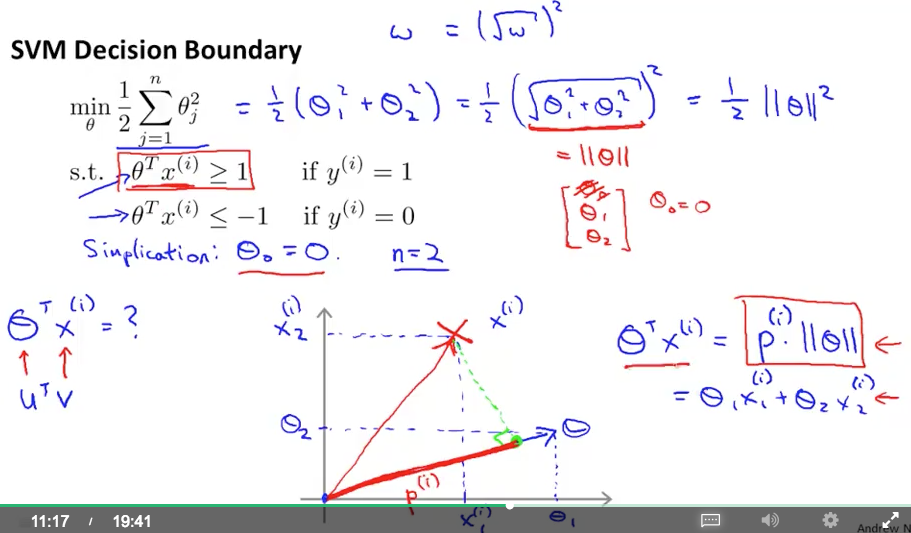 ω = (√ω)²
SVM Decision Boundary
min_θ 1/2 ∑_{j=1}^{n} θ_j² = 1/2 (θ₁² + θ₂²) = 1/2 (√(θ₁² + θ₂²))² = 1/2 ||θ||²
= ||θ||
s.t. θᵀx⁽ⁱ⁾ ≥ 1 if y⁽ⁱ⁾ = 1
θᵀx⁽ⁱ⁾ ≤ −1 if y⁽ⁱ⁾ = 0
θ₁
θ₂
θ₀ = 0
Simplication: θ₀ = 0. n=2
θᵀx⁽ⁱ⁾ = ?
uᵀv
x₂⁽ⁱ⁾
x⁽ⁱ⁾
θ₂
θ
p⁽ⁱ⁾
x₁⁽ⁱ⁾
θ₁
θᵀx⁽ⁱ⁾ = p⁽ⁱ⁾ · ||θ||
= θ₁x₁⁽ⁱ⁾ + θ₂x₂⁽ⁱ⁾
11:17 / 19:41
Andrew N